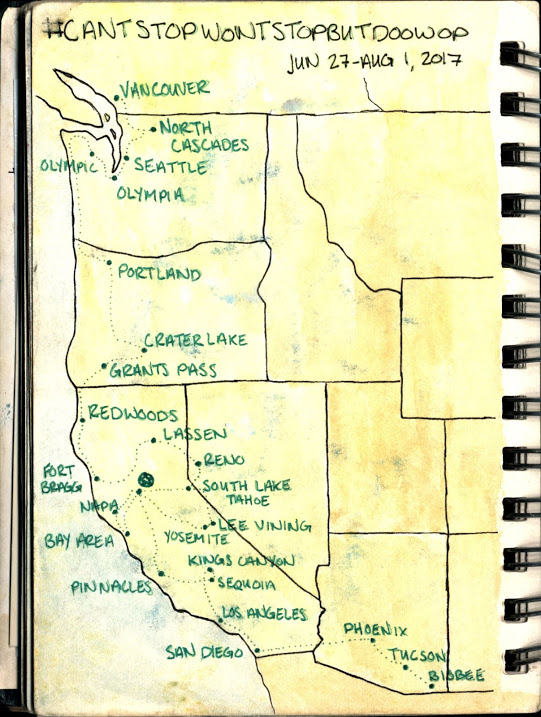 #CANTSTOPWONTSTOPBUTDOOWOP
JUN 27-AUG 1, 2017
VANCOUVER
NORTH
CASCADES
OLYMPIC
SEATTLE
OLYMPIA
PORTLAND
CRATER LAKE
GRANTS PASS
REDWOODS
LASSEN
RENO
FORT
BRAGG
SOUTH LAKE
TAHOE
NAPA
LEE VINING
YOSEMITE
BAY AREA
KINGS CANYON
SEQUOIA
PINNACLES
LOS ANGELES
PHOENIX
SAN DIEGO
TUCSON
BISBEE